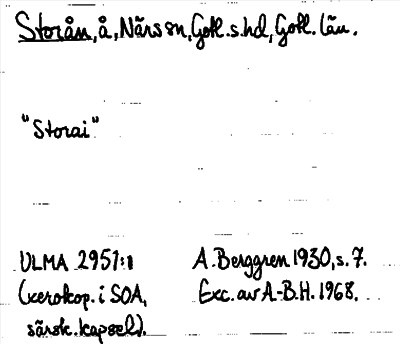 Storån, å, Närs sn, Gotl. s. hd, Gotl. län.
"Storai"
ULMA 2951:1
(xerokop. i SOA,
särsk. kapsel).
A. Berggren 1930, s. 7.
Exc. av A-B.H. 1968.